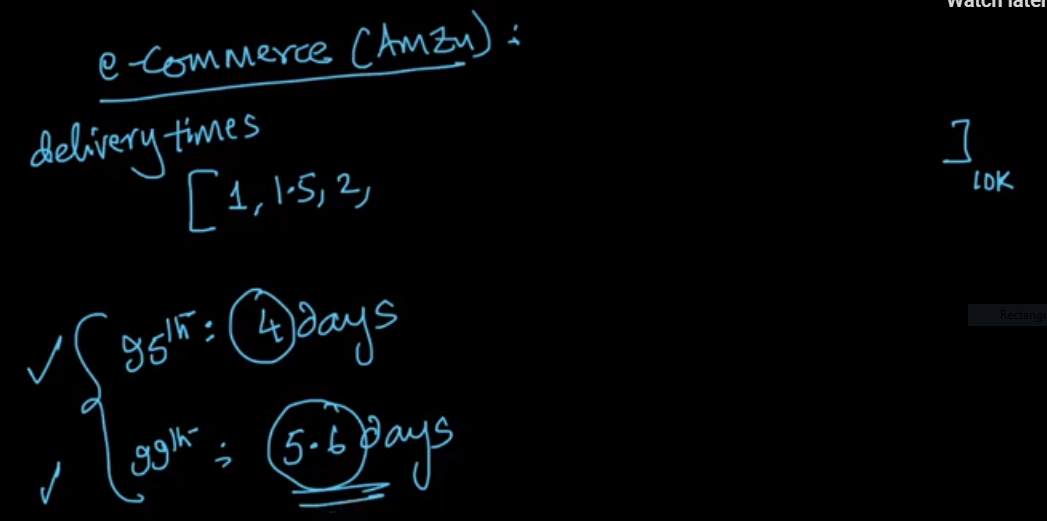 Watch later
e-Commerce (AMZN) :
delivery times
[1, 1.5, 2, ]10K
95th : 4 days
99th : 5.6 days